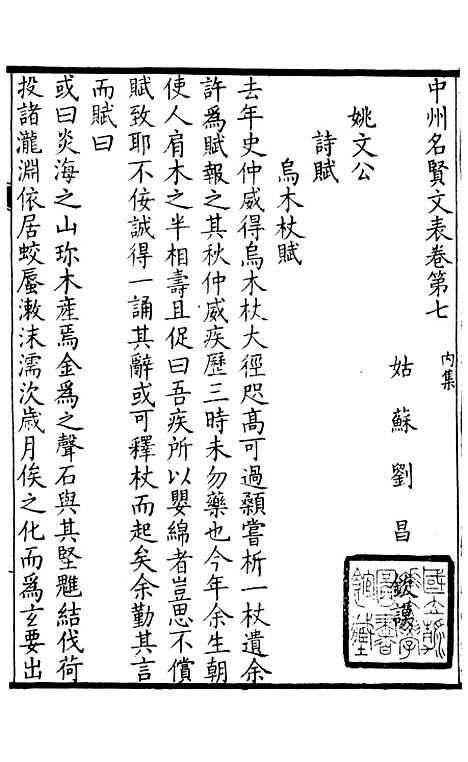 中州名賢文表卷第七 內集
姑蘇劉昌
姚文公
詩賦
烏木杖賦
去年史仲威得烏木杖大徑咫高可過顙嘗析一杖遺余
許爲賦報之其秋仲威疾歷三時未勿藥也今年余生朝
使人肩木之半相壽且促曰吾疾所以嬰綿者豈思不償
賦致耶不佞誠得一誦其辭或可釋杖而起矣余勤其言
而賦曰
或曰炎海之山珎木產焉金爲之聲石與其堅魋結伐荷
投諸瀧淵依居蛟蜃潄沫濡次歲月俟之化而爲玄要出